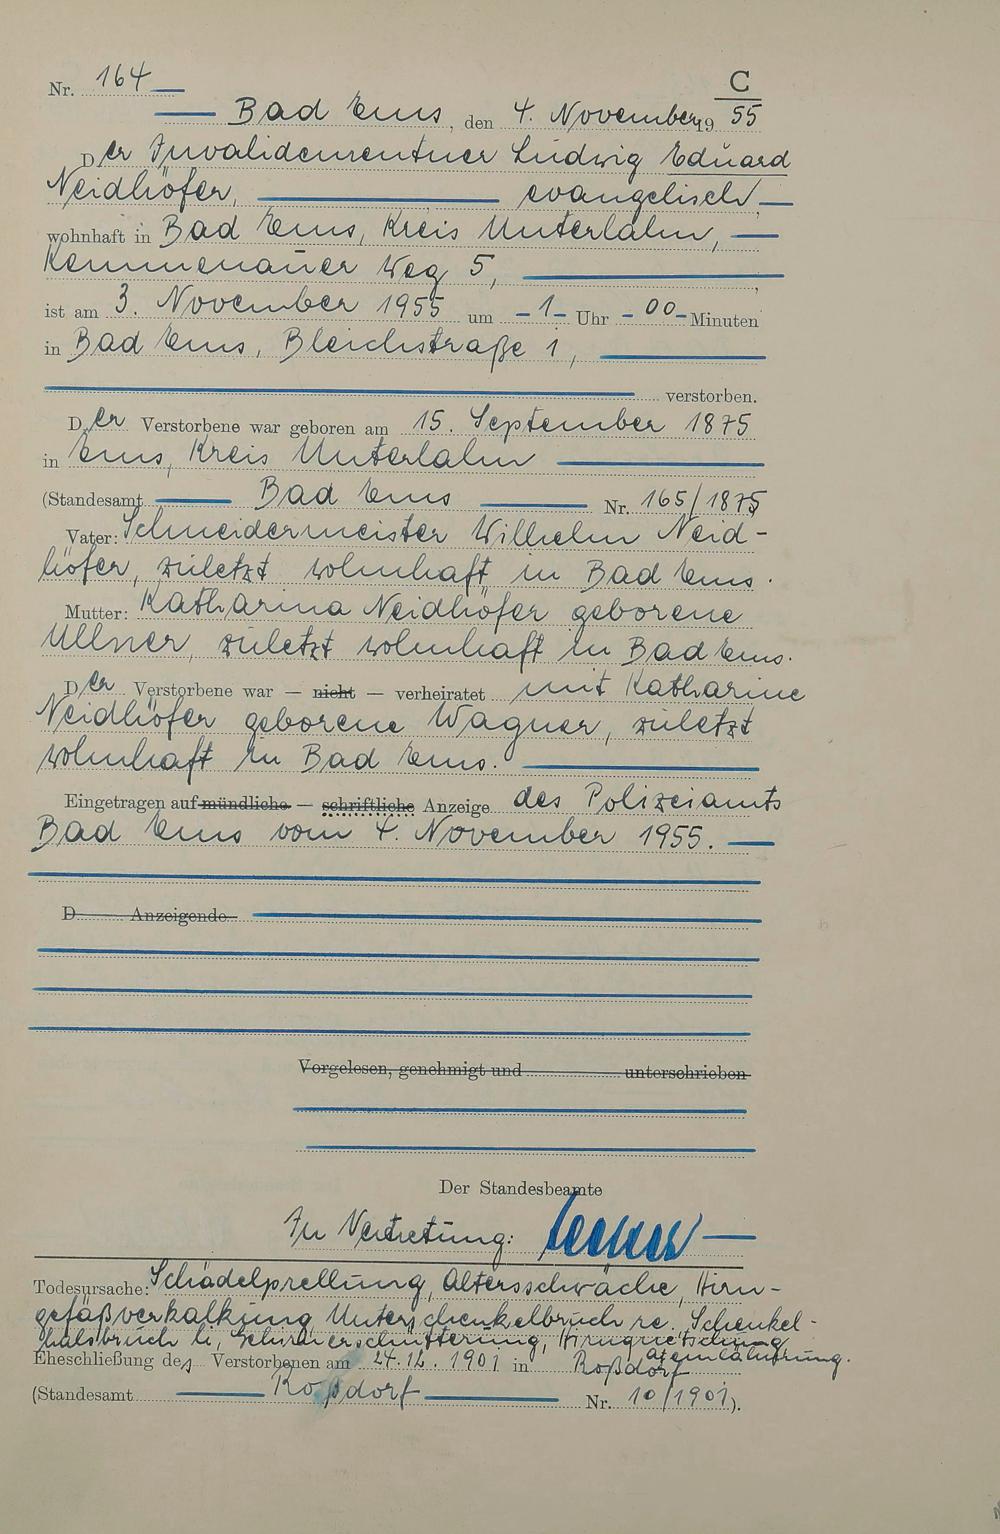 C
Nr. 164
Bad Ems, den 4. November 1955
Der Invalidenrentner Ludwig Eduard
Neidhöfer, evangelisch
wohnhaft in Bad Ems, Kreis Unterlahn,
Kemmenauer Weg 5,
ist am 3. November 1955 um -1- Uhr -00- Minuten
in Bad Ems, Bleichstraße 1,
verstorben.
Der Verstorbene war geboren am 15. September 1875
in Ems, Kreis Unterlahn
(Standesamt Bad Ems Nr. 165/1875
Vater: Schneidermeister Wilhelm Neid-
höfer, zuletzt wohnhaft in Bad Ems.
Mutter: Katharina Neidhöfer geborene
Ullner, zuletzt wohnhaft in Bad Ems.
Der Verstorbene war — nicht — verheiratet mit Katharine
Neidhöfer geborene Wagner, zuletzt
wohnhaft in Bad Ems.
Eingetragen auf mündliche — schriftliche Anzeige des Polizeiamts
Bad Ems vom 4. November 1955.
D Anzeigende
Vorgelesen, genehmigt und unterschrieben
Der Standesbeamte
In Vertretung:
Todesursache: Schädelprellung, Altersschwäche, Hirn-
gefäßverkalkung, Unterschenkelbruch re. Schenkel-
halsbruch li, Gehirnerschütterung, Hirnquetschung
Atemlähmung.
Eheschließung des Verstorbenen am 24.12.1901 in Roßdorf
(Standesamt Roßdorf Nr. 10/1901).